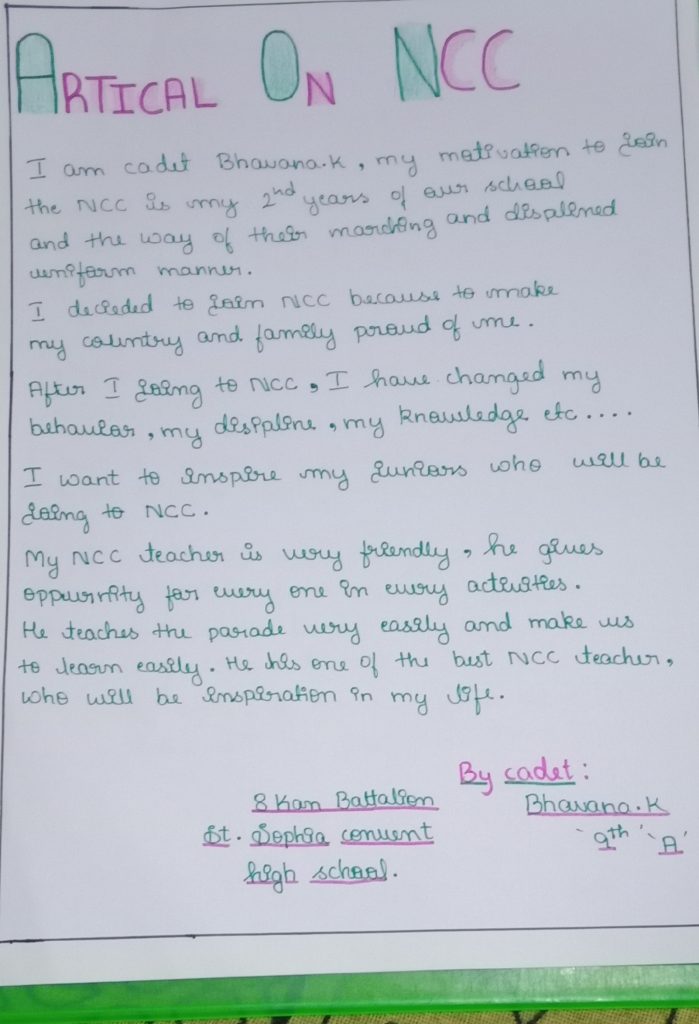 ARTICAL ON NCC
I am cadet Bhavana.K, my motivation to join
the NCC is my 2nd years of our school
and the way of their marching and displened
uniform manner.
I decieded to join NCC because to make
my country and family proud of me.
After I joing to NCC, I have changed my
behavior, my desipline, my knowledge etc....
I want to inspire my juniors who will be
joing to NCC.
My NCC teacher is very friendly, he gives
oppurnity for every one in every activities.
He teaches the parade very easily and make us
to learn easily. He his one of the best NCC teacher,
who will be inspiration in my life.
By cadet:
8 Kan Battalion Bhavana.K
St. Sophia convent 9th 'A'
high school.